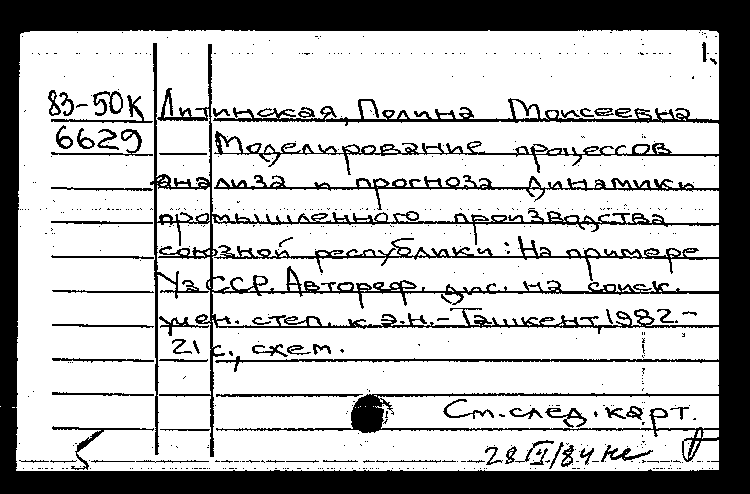 1.
83-50К Литинская, Полина Моисеевна
6629 Моделирование процессов
анализа и прогноза динамики
промышленного производства
союзной республики: На примере
УзССР. Автореф. дис. на соиск.
учен. степ. к.э.н.-Ташкент, 1982.-
21 с., схем.
См. след. карт.
5 28 /84